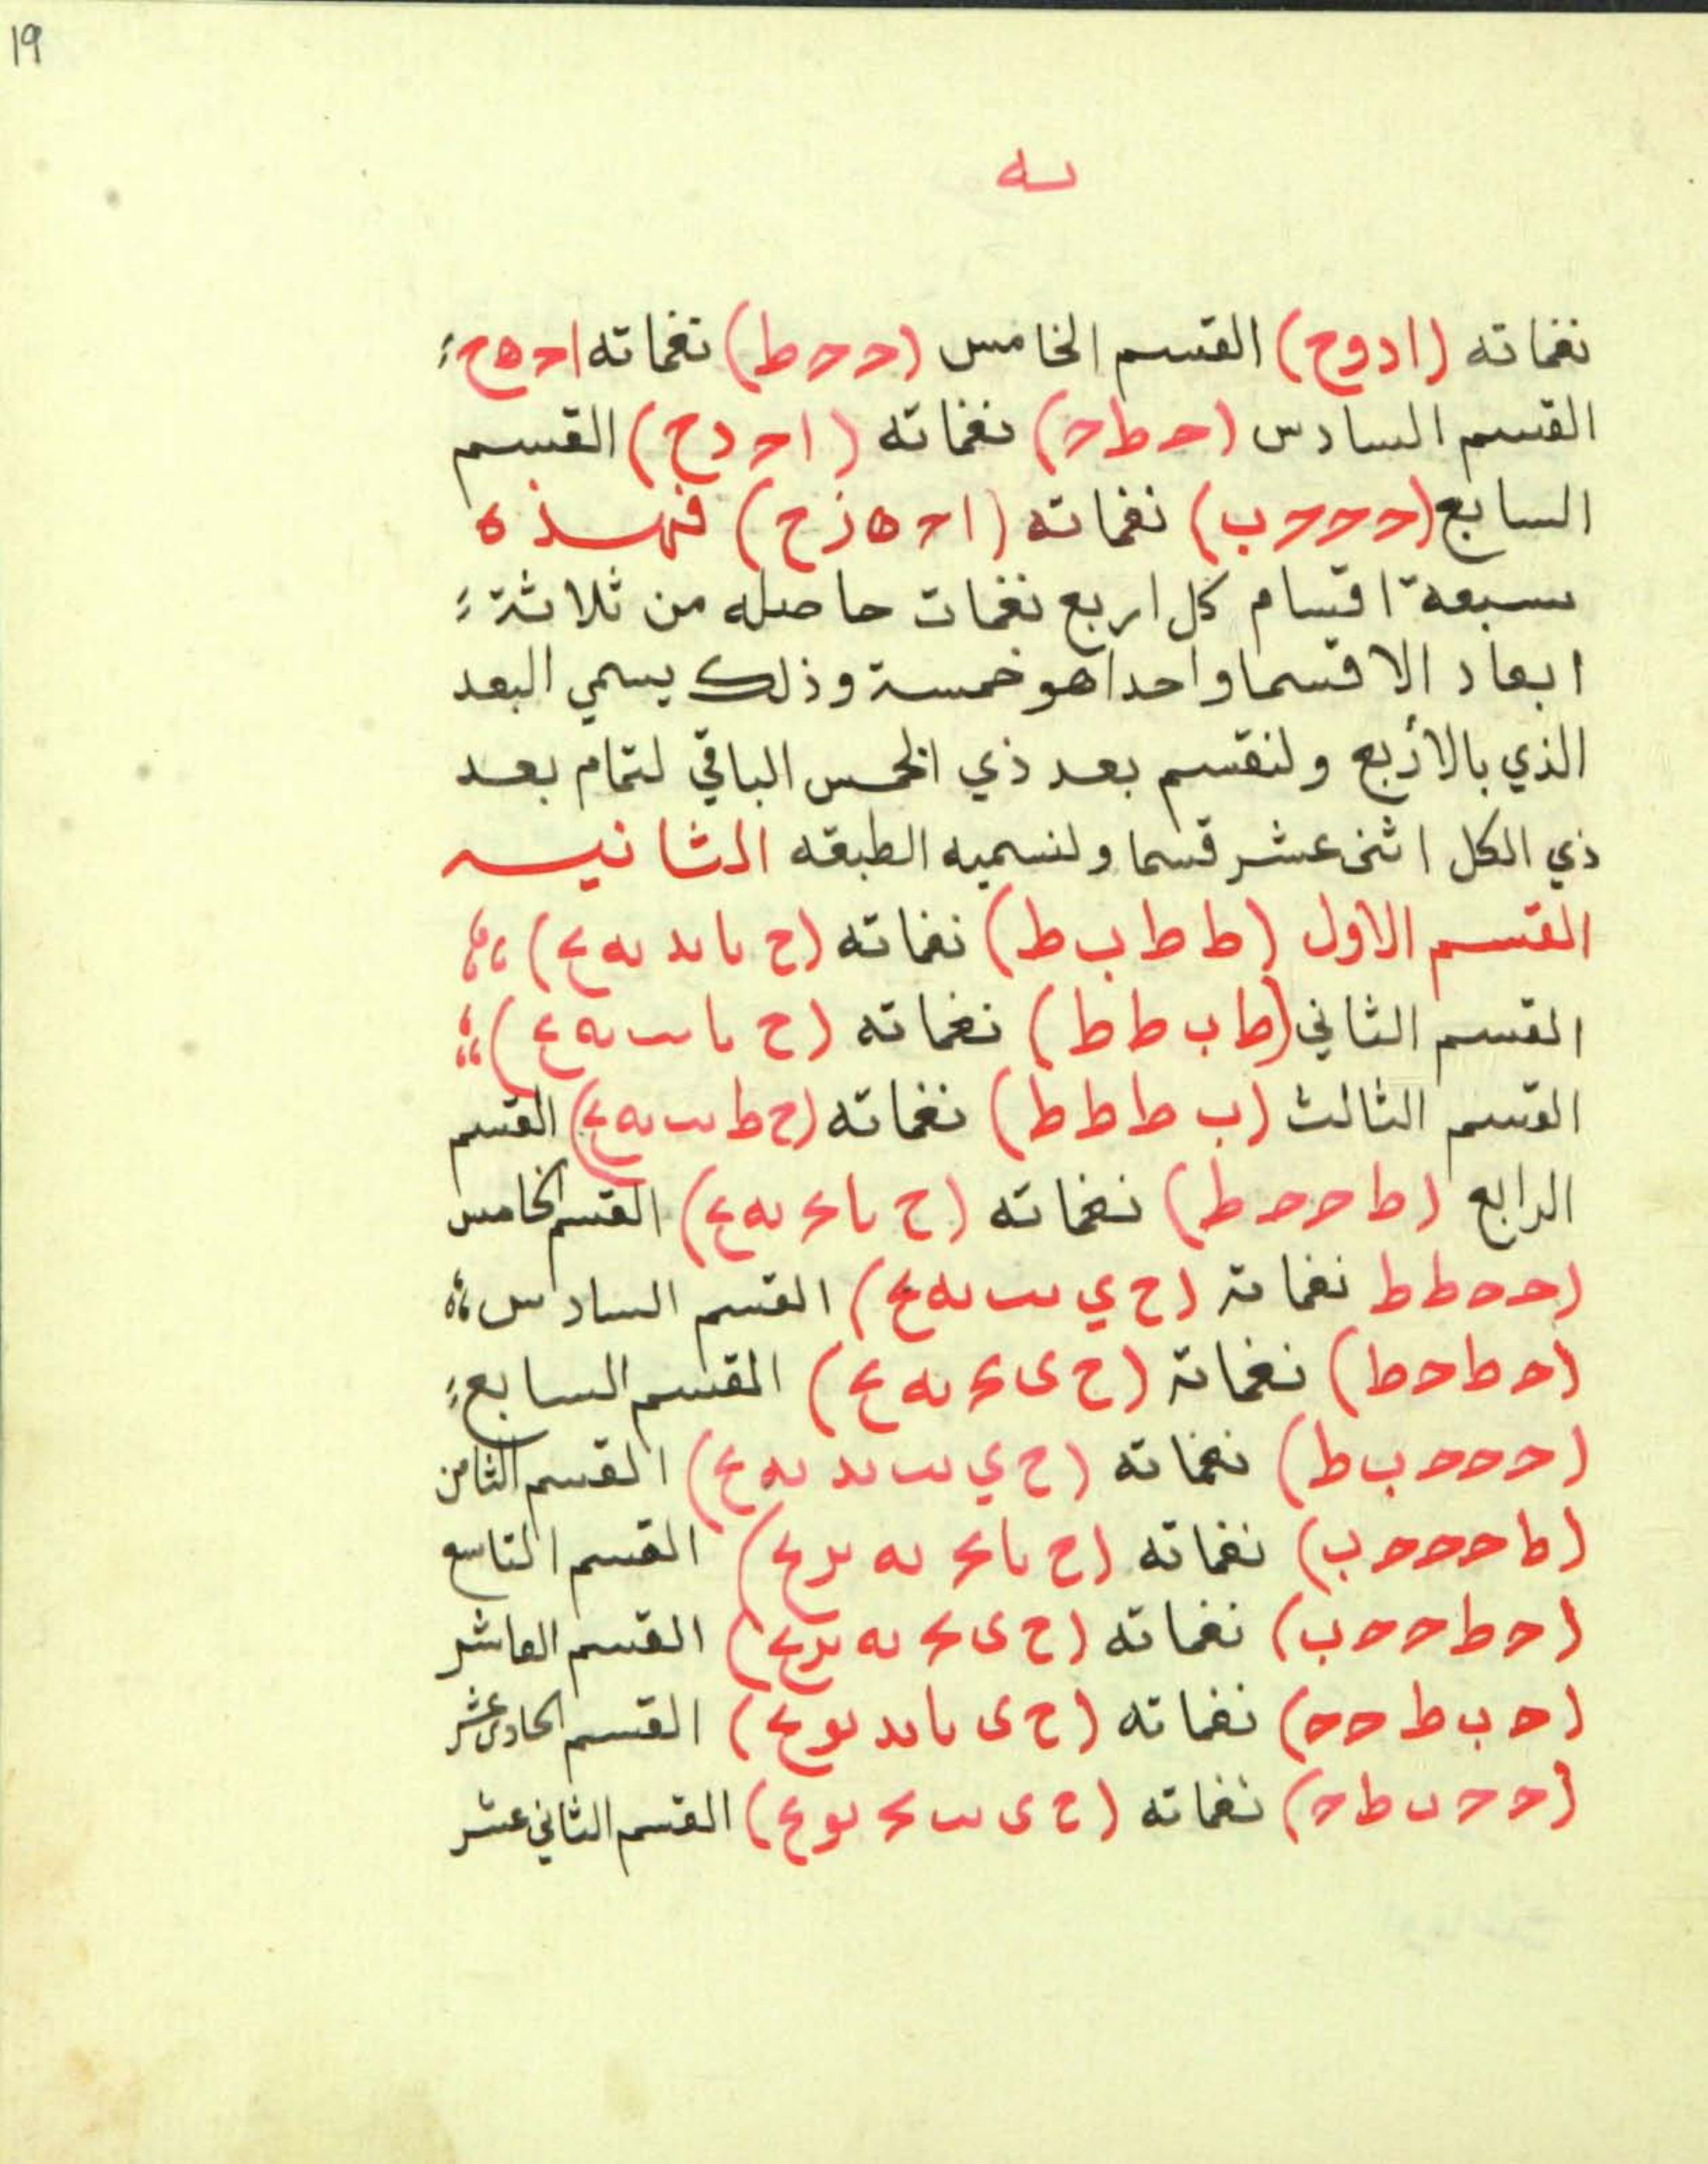 ١٩
يه
نغماته (ا د و ح) القسم الخامس (ح ح ط) نغماته ا ح ه ح
القسم السادس (ح ط ح) نغماته (ا ح د ح) القسم
السابع (ح ح ح ب) نغماته (ا ح ه ز ح) فهذه
سبعة اقسام كل اربع نغمات حاصله من ثلاثة
ابعاد الا قسما واحدا هو خمسة وذلك يسمي البعد
الذي بالأربع ولنقسم بعد ذي الخمس الباقي لتمام بعد
ذي الكل اثنى عشر قسما ولنسميه الطبقه الثانيه
القسم الاول (ط ط ب ط) نغماته (ح يا يد يه يح)
القسم الثاني (ط ب ط ط) نغماته (ح يا يب يه يح)
القسم الثالث (ب ط ط ط) نغماته (ح ط يب يه يح) القسم
الرابع (ط ح ح ط) نغماته (ح يا يج يه يح) القسم الخامس
(ح ح ط ط نغماتة (ح ي يب يه يح) القسم السادس
(ح ط ح ط) نغماتة (ح ى يج يه يح) القسم السابع
(ح ح ح ب ط) نغماته (ح ي يب يد يه يح) القسم الثامن
(ط ح ح ح ب) نغماته (ح يا يج يه يز يح) القسم التاسع
(ح ط ح ح ب) نغماته (ح ى يج يه يز يح) القسم العاشر
(ح ب ط ح ح) نغماته (ح ى يا يد يو يح) القسم الحادى عشر
(ح ح ب ط ح) نغماته (ح ى يب يج يو يح) القسم الثاني عشر